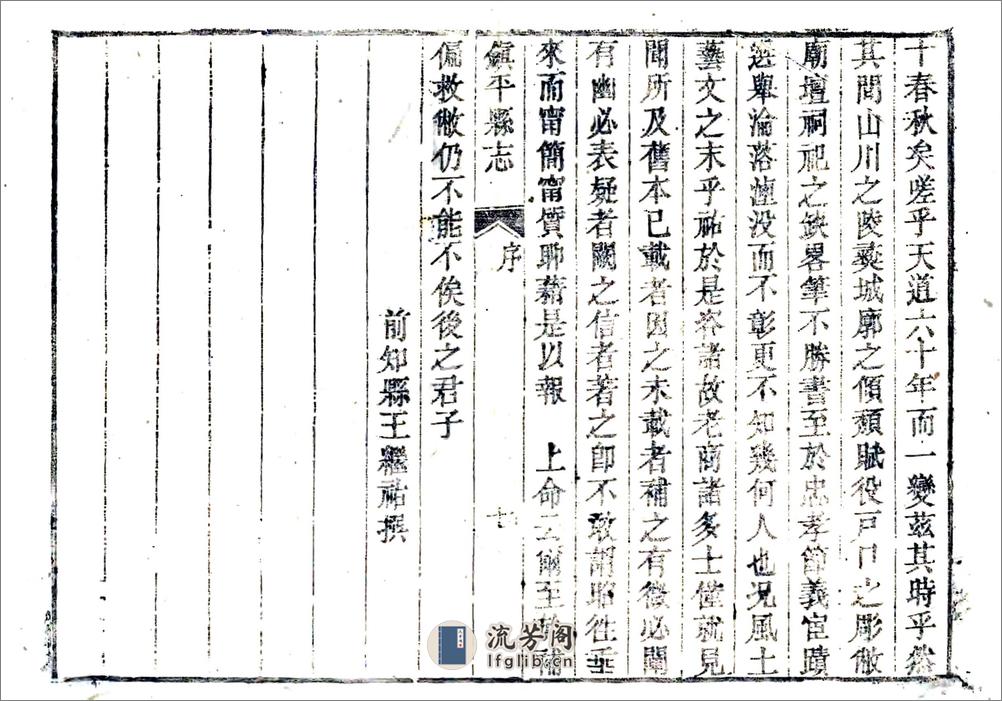 十春秋矣嗟乎天道六十年而一變茲其時乎然
其間山川之陵彛城廓之傾頹賦役戸口之彫敝
廟壇祠祀之缺畧筆不勝書至於忠孝節義宦蹟
選舉淪落湮没而不彰更不知幾何人也况風土
藝文之末乎祐於是咨諸故老商諸多士僅就見
聞所及舊本已載者因之未載者補之有徵必聞
有幽必表疑者闕之信者著之卽不敢謂昭往垂
來而甯簡甯質聊藉是以報　上命云爾至於補
鎭平縣志　序　七
偏救敝仍不能不俟後之君子
前知縣王繼祐撰
流芳阁
lfglib.cn